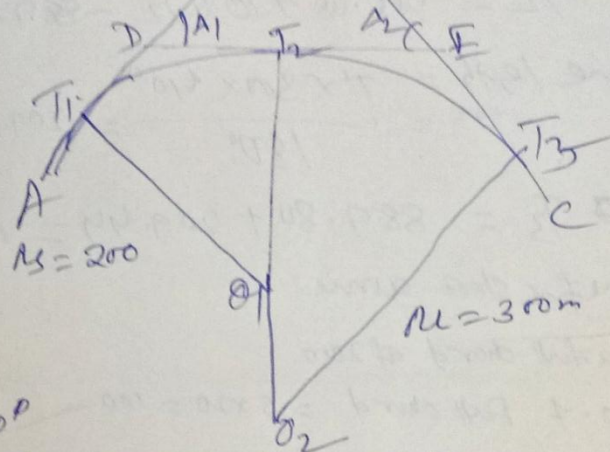 D
A1
T2
A2
E
T1
T3
A
C
Rs = 200
O1
RL = 300m
O2